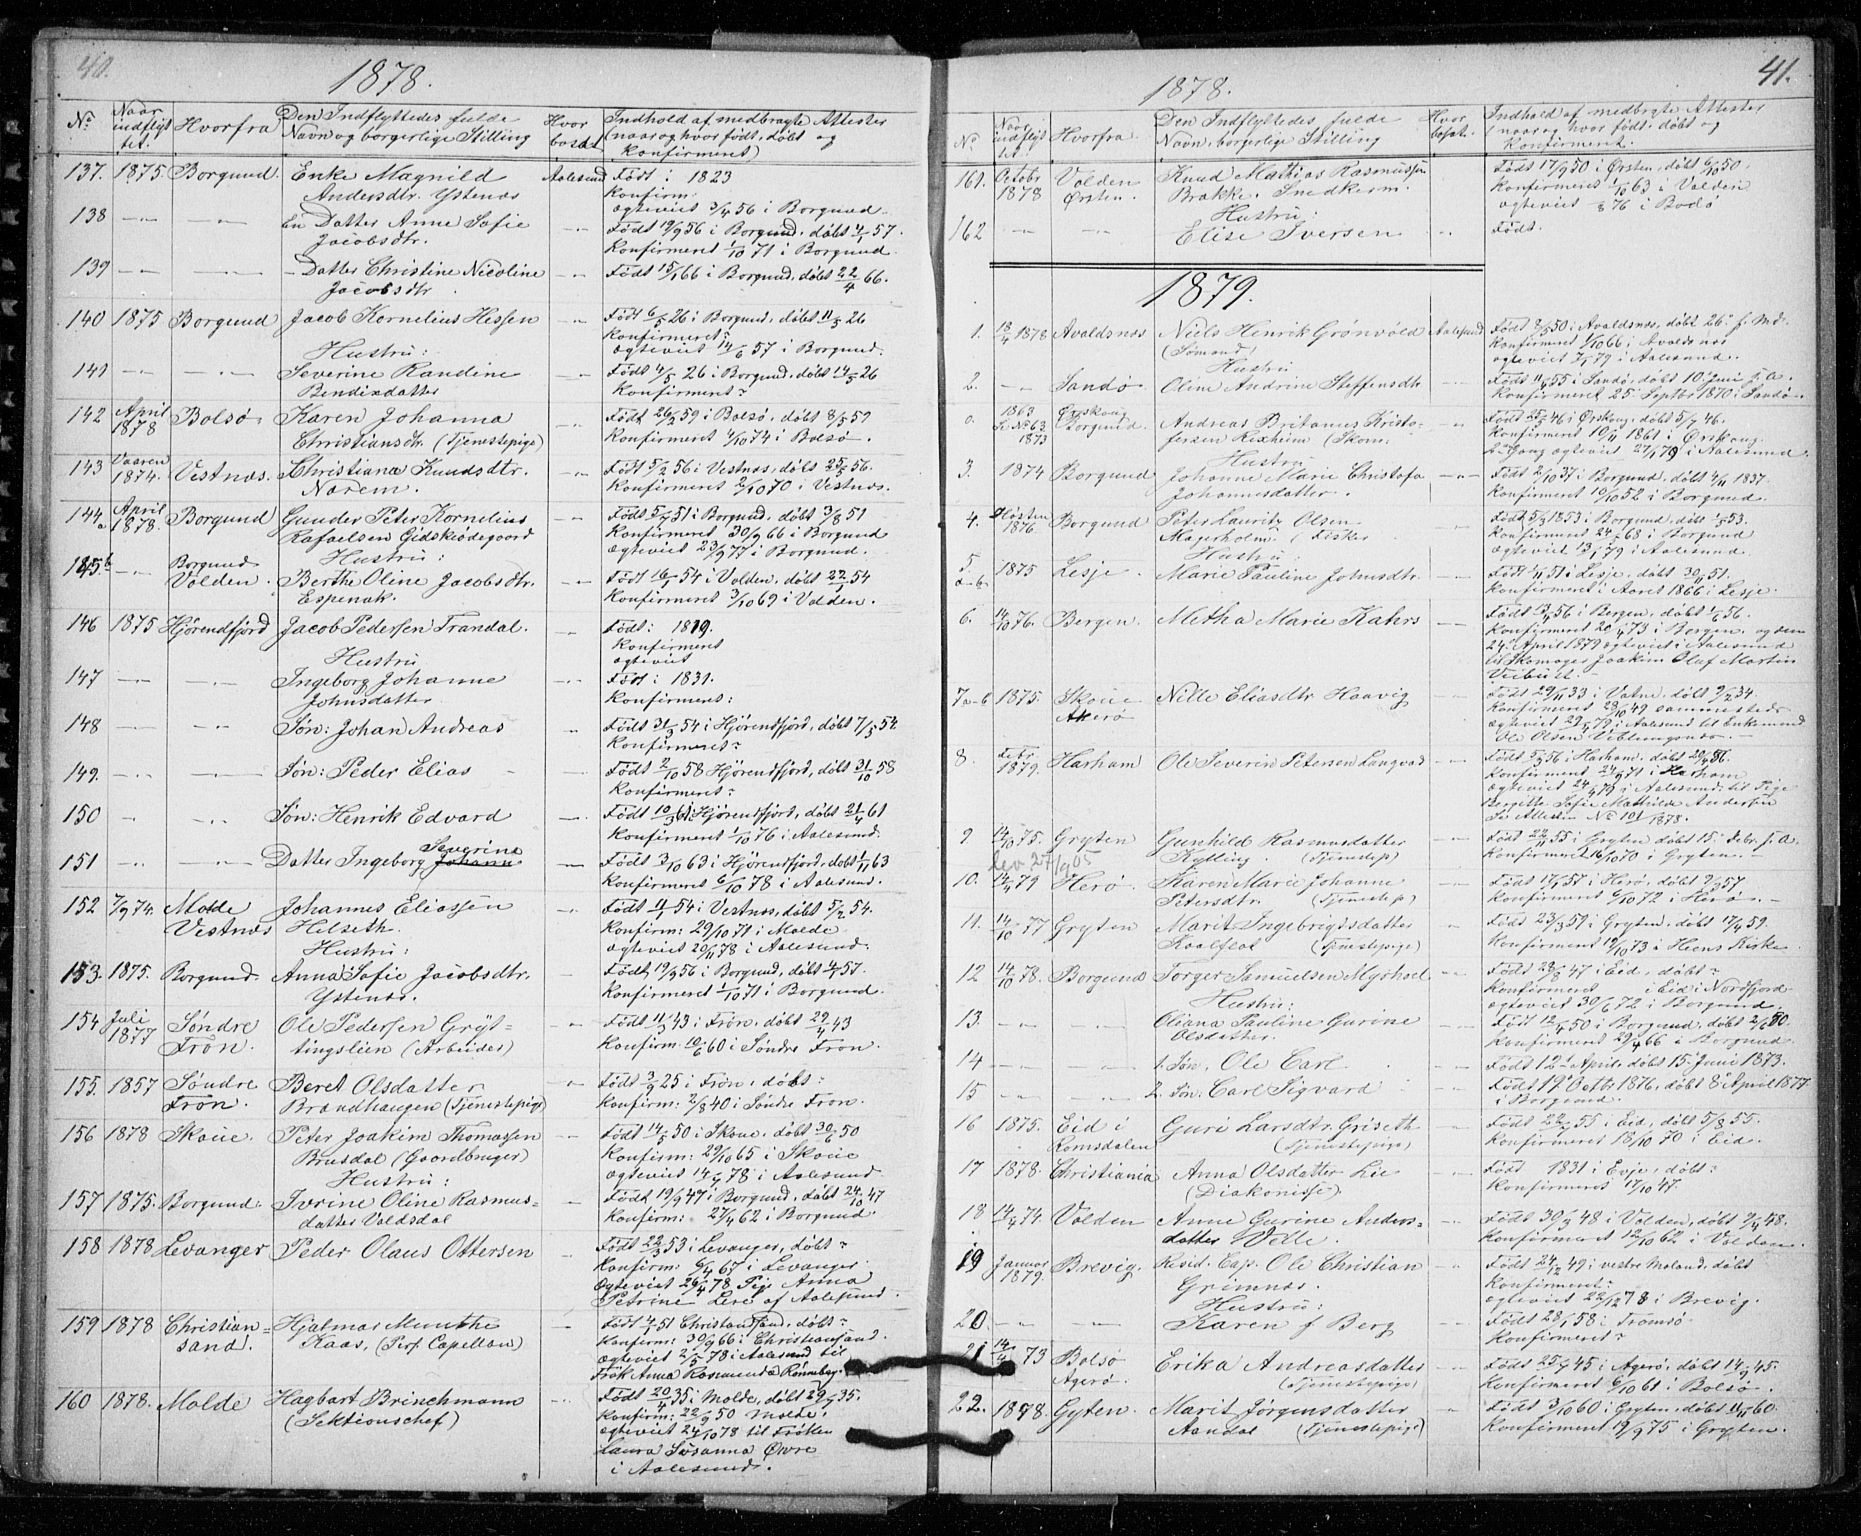 40.
1878.
Nr. Naar indflyttet. Hvorfra Den Indflyttedes fulde Navn og borgerlige Stilling Hvor bosat Indhold af medbragte Attester (naar og hvor født, døbt og Konfirmeret)
137. 1875 Borgund. Enke Magnild Aalesund Født: 1823
Andersdtr. Ystenæs Konfirm:
ægteviet 3/4 56 i Borgund.
138 -"- -"- En Datter Anne Sofie -"- Født 19/9 56 i Borgund, døbt 4/1 57.
Jacobsdtr. Konfirmeret 1/10 71 i Borgund.
139 -"- -"- - Datter Christine Nicoline -"- Født 15/1 66 i Borgund, døbt 22/4 66.
Jacobsdtr
140 1875 Borgund Jacob Kornelius Hessen -"- Født 6/3 26 i Borgund, døbt 11/3 26
Konfirmeret:
Hustru: ægteviet 14/6 57 i Borgund.
141 -"- -"- Severine Randine -"- Født 4/5 26 i Borgund, døbt 14/5 26
Bendixdatter Konfirmeret?
142 April 1878 Bolsø. Karen Johanna -"- Født 26/2 59 i Bolsø, døbt 8/5 59
Christiansdtr. (Tjenestepige) Konfirmeret 4/10 74 i Bolsø.
143 Vaaren 1874. Vestnæs. Christiana Knudsdtr. -"- Født 5/2 56 i Vestnæs, døbt 25/3 56.
Narem. Konfirmeret 2/10 70 i Vestnæs.
144a April 1878. Borgund Gunder Peter Kornelius -"- Født 5/7 51 i Borgund, døbt 3/8 51
Rafaelsen Gidskiødegaard Konfirmeret 30/9 66 i Borgund
Hustru: ægteviet 23/9 77 i Borgund.
145b -"- Borgund Volden. Berthe Oline Jacobsdtr. -"- Født 16/1 54 i Volden, døbt 22/1 54
Espenak. Konfirmeret 3/10 69 i Volden.
146 1875 Hjørendfjord Jacob Pedersen Trandal. -"- Født: 1819.
Konfirmeret
Hustru ægteviet
147 -"- -"- Ingeborg Johanne -"- Født: 1831.
Johnsdatter Konfirmeret:
148 -"- Søn: Johan Andreas " Født 31/3 54 i Hjørendfjord, døbt 7/5 54
Konfirmeret?
149. -"- -"- Søn: Peder Elias - -"- Født 2/10 58 Hjørendfjord, døbt 31/10 58
Konfirmeret?
150 -"- Søn: Henrik Edvard -"- Født 10/3 61 i Hjørendfjord, døbt 21/4 61
Konfirmeret 1/10 76 i Aalesund.
151 -"- -"- Datter Ingeborg Severine Johanne -"- Født 3/10 63 i Hjørendfjord, døbt 1/11 63
Konfirmeret 6/10 78 i Aalesund.
152 7/9 74. Molde Johannes Eliassen -"- Født 11/1 54 i Vestnæs, døbt 5/2 54.
Vestnæs Helseth. Konfirm: 29/10 71 i Molde
Hustru: ægteviet 20/11 78 i Aalesund.
153. 1875. Borgund. Anna Sofie Jacobsdtr. - Født 19/9 56 i Borgund, døbt 4/1 57.
Ystenæs. Konfirmeret 1/10 71 i Borgund.
154 Juli 1877 Søndre Fron. Ole Pedersen Gryt- - Født 11/3 43 i Fron, døbt 29/4 43
tingslien (Arbeider) Konfirm. 10/6 60 i Søndre Fron.
155. 1857 Søndre Fron. Beret Olsdatter " Født 3/9 25 i Fron, døbt:
Brandhaugen (Tjenestepige) Konfirm: 2/8 40 i Søndre Fron.
156 1878 Skoue. Peter Joakim Thomassen - Født 14/5 50 i Skoue, døbt 30/6 50
Brusdal (Gaardbruger) Konfirm: 29/10 65 i Skoue
Hustru: ægteviet 14/7 78 i Aalesund
157 1875. Borgund. Ivrine Oline Rasmus- - Født 19/9 47 i Borgund, døbt 24/10 47
datter Valdsdal Konfirm: 27/4 62 i Borgund.
158 1878 Levanger Peder Olaus Ottersen - Født 22/3 53 i Levanger, døbt?
Konfirm: 6/4 67 i Levanger.
Ægteviet 26/4 78 Pige Anna
Petrine Lere af Aalesund.
159 1878 Christian- Hjalmar Munthe - Født 4/7 51 Christiansand, døbt?
sand. Kaas, (Pers. Capellan) Konfirm: 30/9 66 i Christiansand.
ægteviet 2/5 78 i Aalesund til
Frøk Anna Rasmunda Rønneberg.
160 1878. Molde Hagbart Brinchmann -"- Født 20/4 35 i Molde, døbt 29/5 35.
(Sektionschef) Konfirm: 22/9 50 Molde.
ægteviet 24/10 78 til Frøken
Laura Susanna Øvre
i Aalesund.
41.
1878.
Nr. Naar indflyttet. Hvorfra. Den Indflyttedes fulde Navn, borgerlige Stilling Hvor bosat. Indhold af medbragte Attester (naar og hvor født, døbt og Konfirmeret.
161. Octobr 1878 Volden Knud Mathias Rasmussen Født 17/9 50 i Ørsten, døbt 6/10 50.
Ørsten. Brakke. Snedkerm. Konfirmeret 1/10 63 i Volden
Hustru: ægteviet 8 76 i Bodø
162 -"- -"- Elise Iversen " Født.
1879.
1. 18/4 1878 Avaldsnæs Niels Henrik Grønvold Aalesund Født 8/5 50 i Avaldsnæs, døbt 26 f. Md.
(Sømand) Konfirmeret 1/10 66 i Avaldsnæs
Hustru ægteviet 1/79 i Aalesund.
2. -"- Sandø Oline Andrine Steffensdtr -"- Født 11/6 55 i Sandø, døbt 10 Juni s. A.
Konfirmeret 25 Septbr 1870 i Sandø.
0. 1863 Ørskoug
K. No 63 1873 Borgund. Andreas Britanus Kristo- -"- Født 25/5 46 i Ørskoug, døbt 5/7 46.
fersen Rexheim (Skom: Konfirmeret 10/11 1861 i Ørskoug.
Hustru 2den Gang ægteviet 27/1 79 i Aalesund.
3. 1874 Borgund Johanne Marie Christofa -"- Født 2/10 37 i Borgund, døbt 4/11 1837.
Johannesdatter. Konfirmeret 10/10 52 i Borgund.
4. Høsten 1876 Borgund Peter Lauritz Olsen Født 5/3 1853 i Borgund, døbt 1/5 53.
Magerholm. (Fisker Konfirmeret 24/5 68 i Borgund
Hustru: ægteviet 13/1 79 i Aalesund.
5. a-b 1875 Lesje. Marie Pauline Johnsdtr. - Født 1/11 51 i Lesje, døbt 30/11 51.
Konfirmeret i Aaret 1866 i Lesje.
6. 14/10 76. Bergen. Metha Marie Kahrs Født 3/4 56 i Bergen, døbt 1/6 56.
Konfirmeret 20/4 73 i Bergen. og den
24. April 1879 ægteviet i Aalesund
til Skomager Joakim Oluf Martin
Veibust.
7a-b 1875. Skoue Nille Eliasdtr Haavig Født 29/11 33 i Vatne, døbt 9/2 34.
Akerø Konfirmeret 28/10 49 sammesteds
ægteviet 29/4 79 i Aalesund til Enkemand
Ole Olsen Veblungsnæs.
8. Febr. 1879. Harham Ole Severin Petersen Langvad Født 5/3 56 i Harham, døbt 20/4 56.
Konfirmeret 24/9 71 i Harham
ægteviet 24/4 79 i Aalesund til Pige
Bergitte Sofie Mathilde Andersen
Se Attester No 101 1878.
9 14/10 75. Gryten Gunhild Rasmusdatter Født 22/11 55 i Gryten døbt 15 Febr. s. A
Kylling. (Tjenestep) Konfirmeret 16/10 70 i Gryten.
lev 27/1 905
10. 14/4 79 Herø. Karen Marie Johanne " Født 17/1 57 i Herø, døbt 9/3 57
Petersdtr. (Tjenestep) Konfirmeret 6/10 72 i Herø.
11. 14/10 77 Gryten Marit Ingebrigtsdatter Født 23/3 59 i Gryten, døbt 17/4 59.
Kaalflot (Tjenestepige) Konfirmeret 19/10 73 i Heens Kirke.
12 14/10 78. Borgund Torger Samuelsen Myrhoel Født 28/8 47 i Eid, døbt?
Konfirmeret i Eid i Nordfjord
Hustru: ægteviet 30/6 72 i Borgund.
13. - " - Oliana Pauline Gurine - Født 12/4 50 i Borgund, døbt 2/6 50.
Olsdatter. Konfirmeret 29/4 66 i Borgund
14 - " 1. Søn. Ole Carl. - Født 12 April, døbt 15 Juni 1873.
15 " " 2. Søn: Carl Sigvard " Født 19 Octbr 1876, døbt 8 April 1877
i Borgund.
16 1875. Eid i Guri Larsdtr. Griseth - Født 22/7 55 i Eid, døbt 5/8 55.
Romsdalen (Tjenestepige) Konfirmeret 18/10 70 i Eid.
17 1878. Christiania Anna Olsdatter Lie -"- Født 1831 i Evje, døbt:
(Diakonisse). Konfirmeret 17/10 47.
18 14/4 74. Volden Anne Gurine Anders- - Født 30/3 48 i Volden, døbt 9/4 48.
datter Velle. Konfirmeret 12/10 62 i Volden.
19 Januar 1879. Brevig. Resid. Cap. Ole Christian -"- Født 24/12 49 i vestre Moland, døbt
Grimnæs. Konfirmeret:
Hustru: ægteviet 22/12 78 i Brevig.
20 -"- -"- Karen f Berg -"- Født 28/1 58 i Tromsø
Konfirmeret?
21 14/4 73 Bolsø Erika Andreasdatter Født 25/7 45 i Agerø, døbt 14/9 45.
Agerø. (Tjenestepige) Konfirmeret 6/10 61 i Bolsø.
22. 1878. Gyten. Marit Jørgensdatter Født 3/10 60 i Gryten, døbt 11/11 60.
Aandal (Tjenestepige) Konfirmeret 19/9 75 i Gryten.